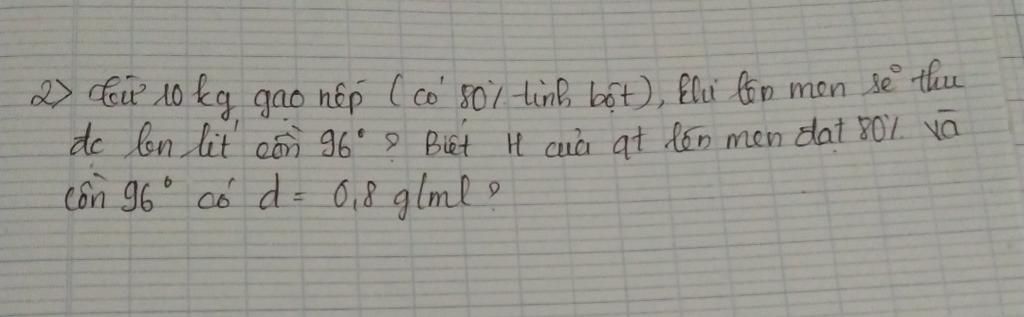 2) Từ 10 kg gạo nếp (có 80% tinh bột), khi lên men sẽ thu
đc bn lít cồn 96° ? Biết H của qt lên men đạt 80% và
cồn 96° có d = 0,8 g/ml ?